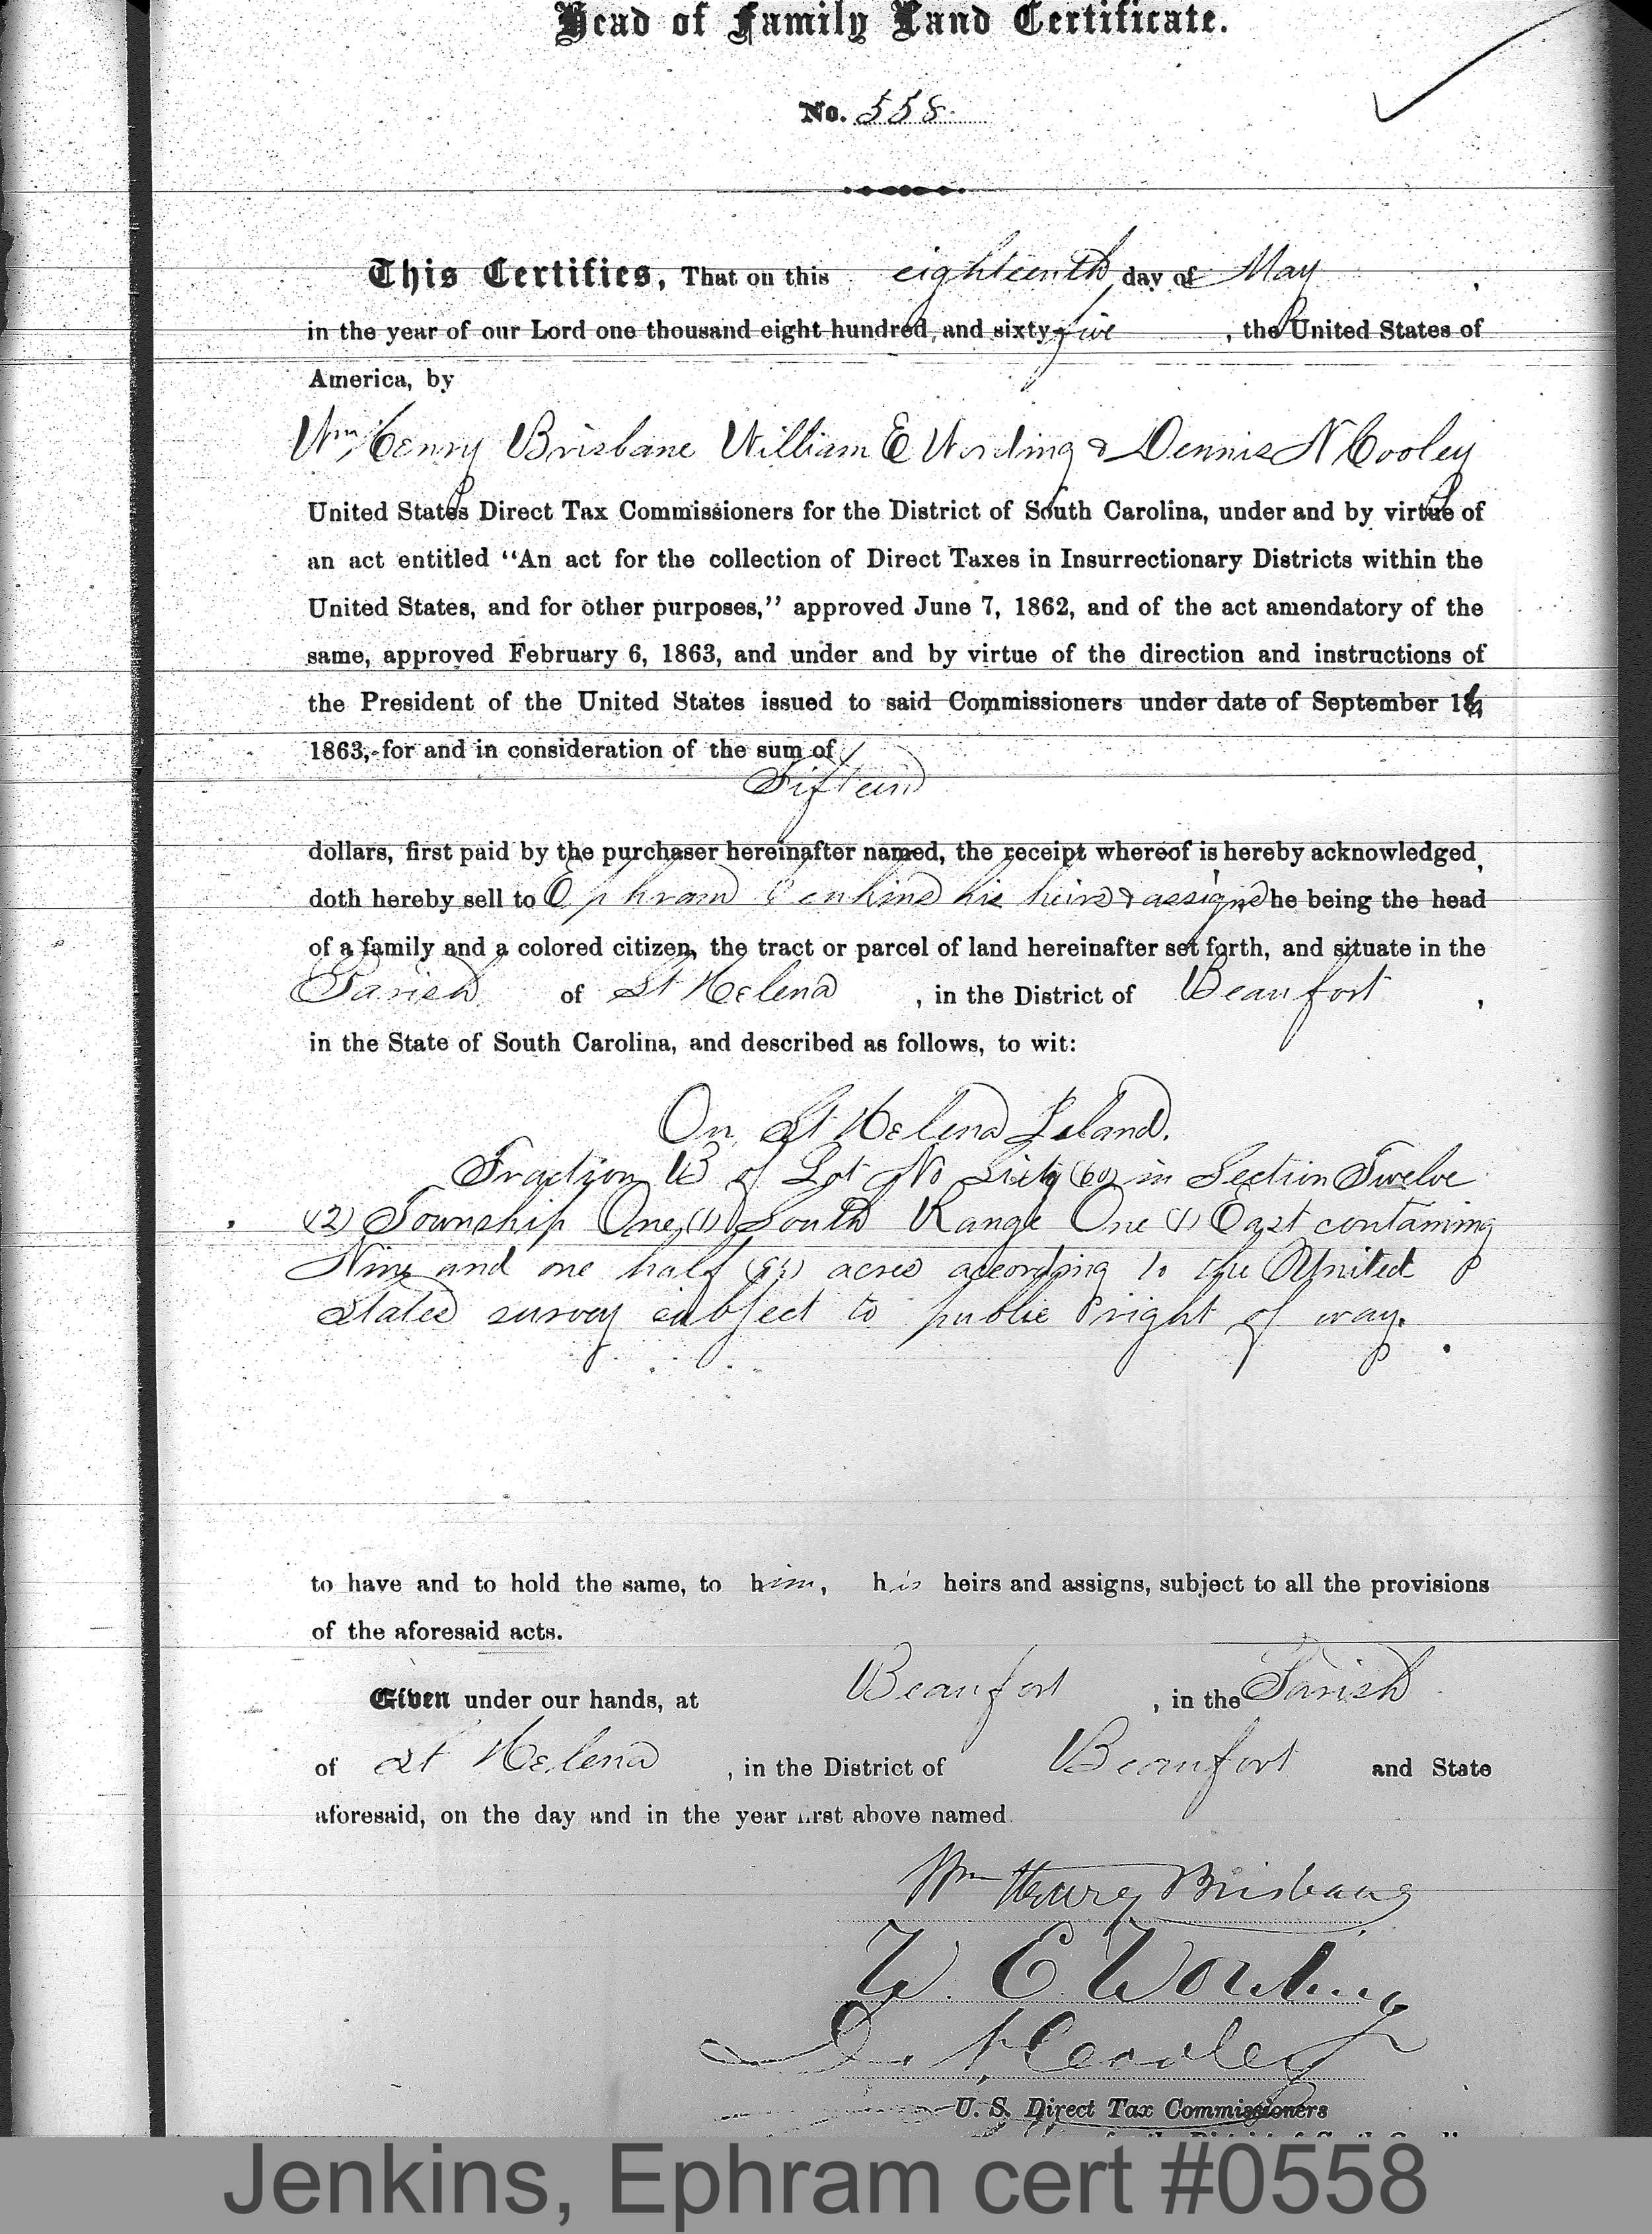 Head of Family Land Certificate.
No. 558.
This Certifies, That on this eighteenth day of May,
in the year of our Lord one thousand eight hundred, and sixty-five, the United States of
America, by
Wm Henry Brisbane William E Wording & Dennis N Cooley
United States Direct Tax Commissioners for the District of South Carolina, under and by virtue of
an act entitled "An act for the collection of Direct Taxes in Insurrectionary Districts within the
United States, and for other purposes," approved June 7, 1862, and of the act amendatory of the
same, approved February 6, 1863, and under and by virtue of the direction and instructions of
the President of the United States issued to said Commissioners under date of September
1863, for and in consideration of the sum of
Fifteen
dollars, first paid by the purchaser hereinafter named, the receipt whereof is hereby acknowledged,
doth hereby sell to Ephram Jenkins his heirs & assigns he being the head
of a family and a colored citizen, the tract or parcel of land hereinafter set forth, and situate in the
Parish of St Helena, in the District of Beaufort,
in the State of South Carolina, and described as follows, to wit:
On St Helena Island.
Fraction B of Lot No Sixty (60) in Section Twelve
(12) Township One (1) South Range One (1) East containing
Nine and one half (9½) acres according to the United
States survey subject to public right of way.
to have and to hold the same, to him, his heirs and assigns, subject to all the provisions
of the aforesaid acts.
Given under our hands, at Beaufort, in the Parish
of St Helena, in the District of Beaufort and State
aforesaid, on the day and in the year first above named.
Wm Henry Brisbane
W. E. Wording
D. N. Cooley
U. S. Direct Tax Commissioners
Jenkins, Ephram cert #0558